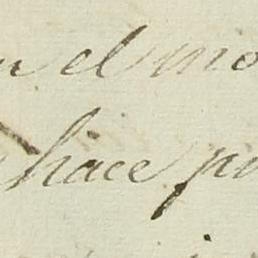 el mo
hace po